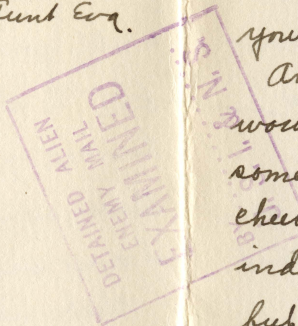 Aunt Eva.
DETAINED ALIEN
ENEMY MAIL
EXAMINED
BY U.S.I. & N.S.
you
wou
some
chee
ind